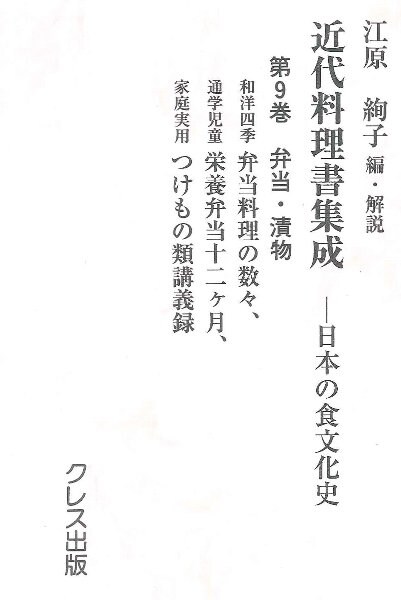 江原 絢子 編・解説
近代料理書集成 ―日本の食文化史
第9巻 弁当・漬物
和洋四季 弁当料理の数々、
通学児童 栄養弁当十二ヶ月、
家庭実用 つけもの類講義録
クレス出版